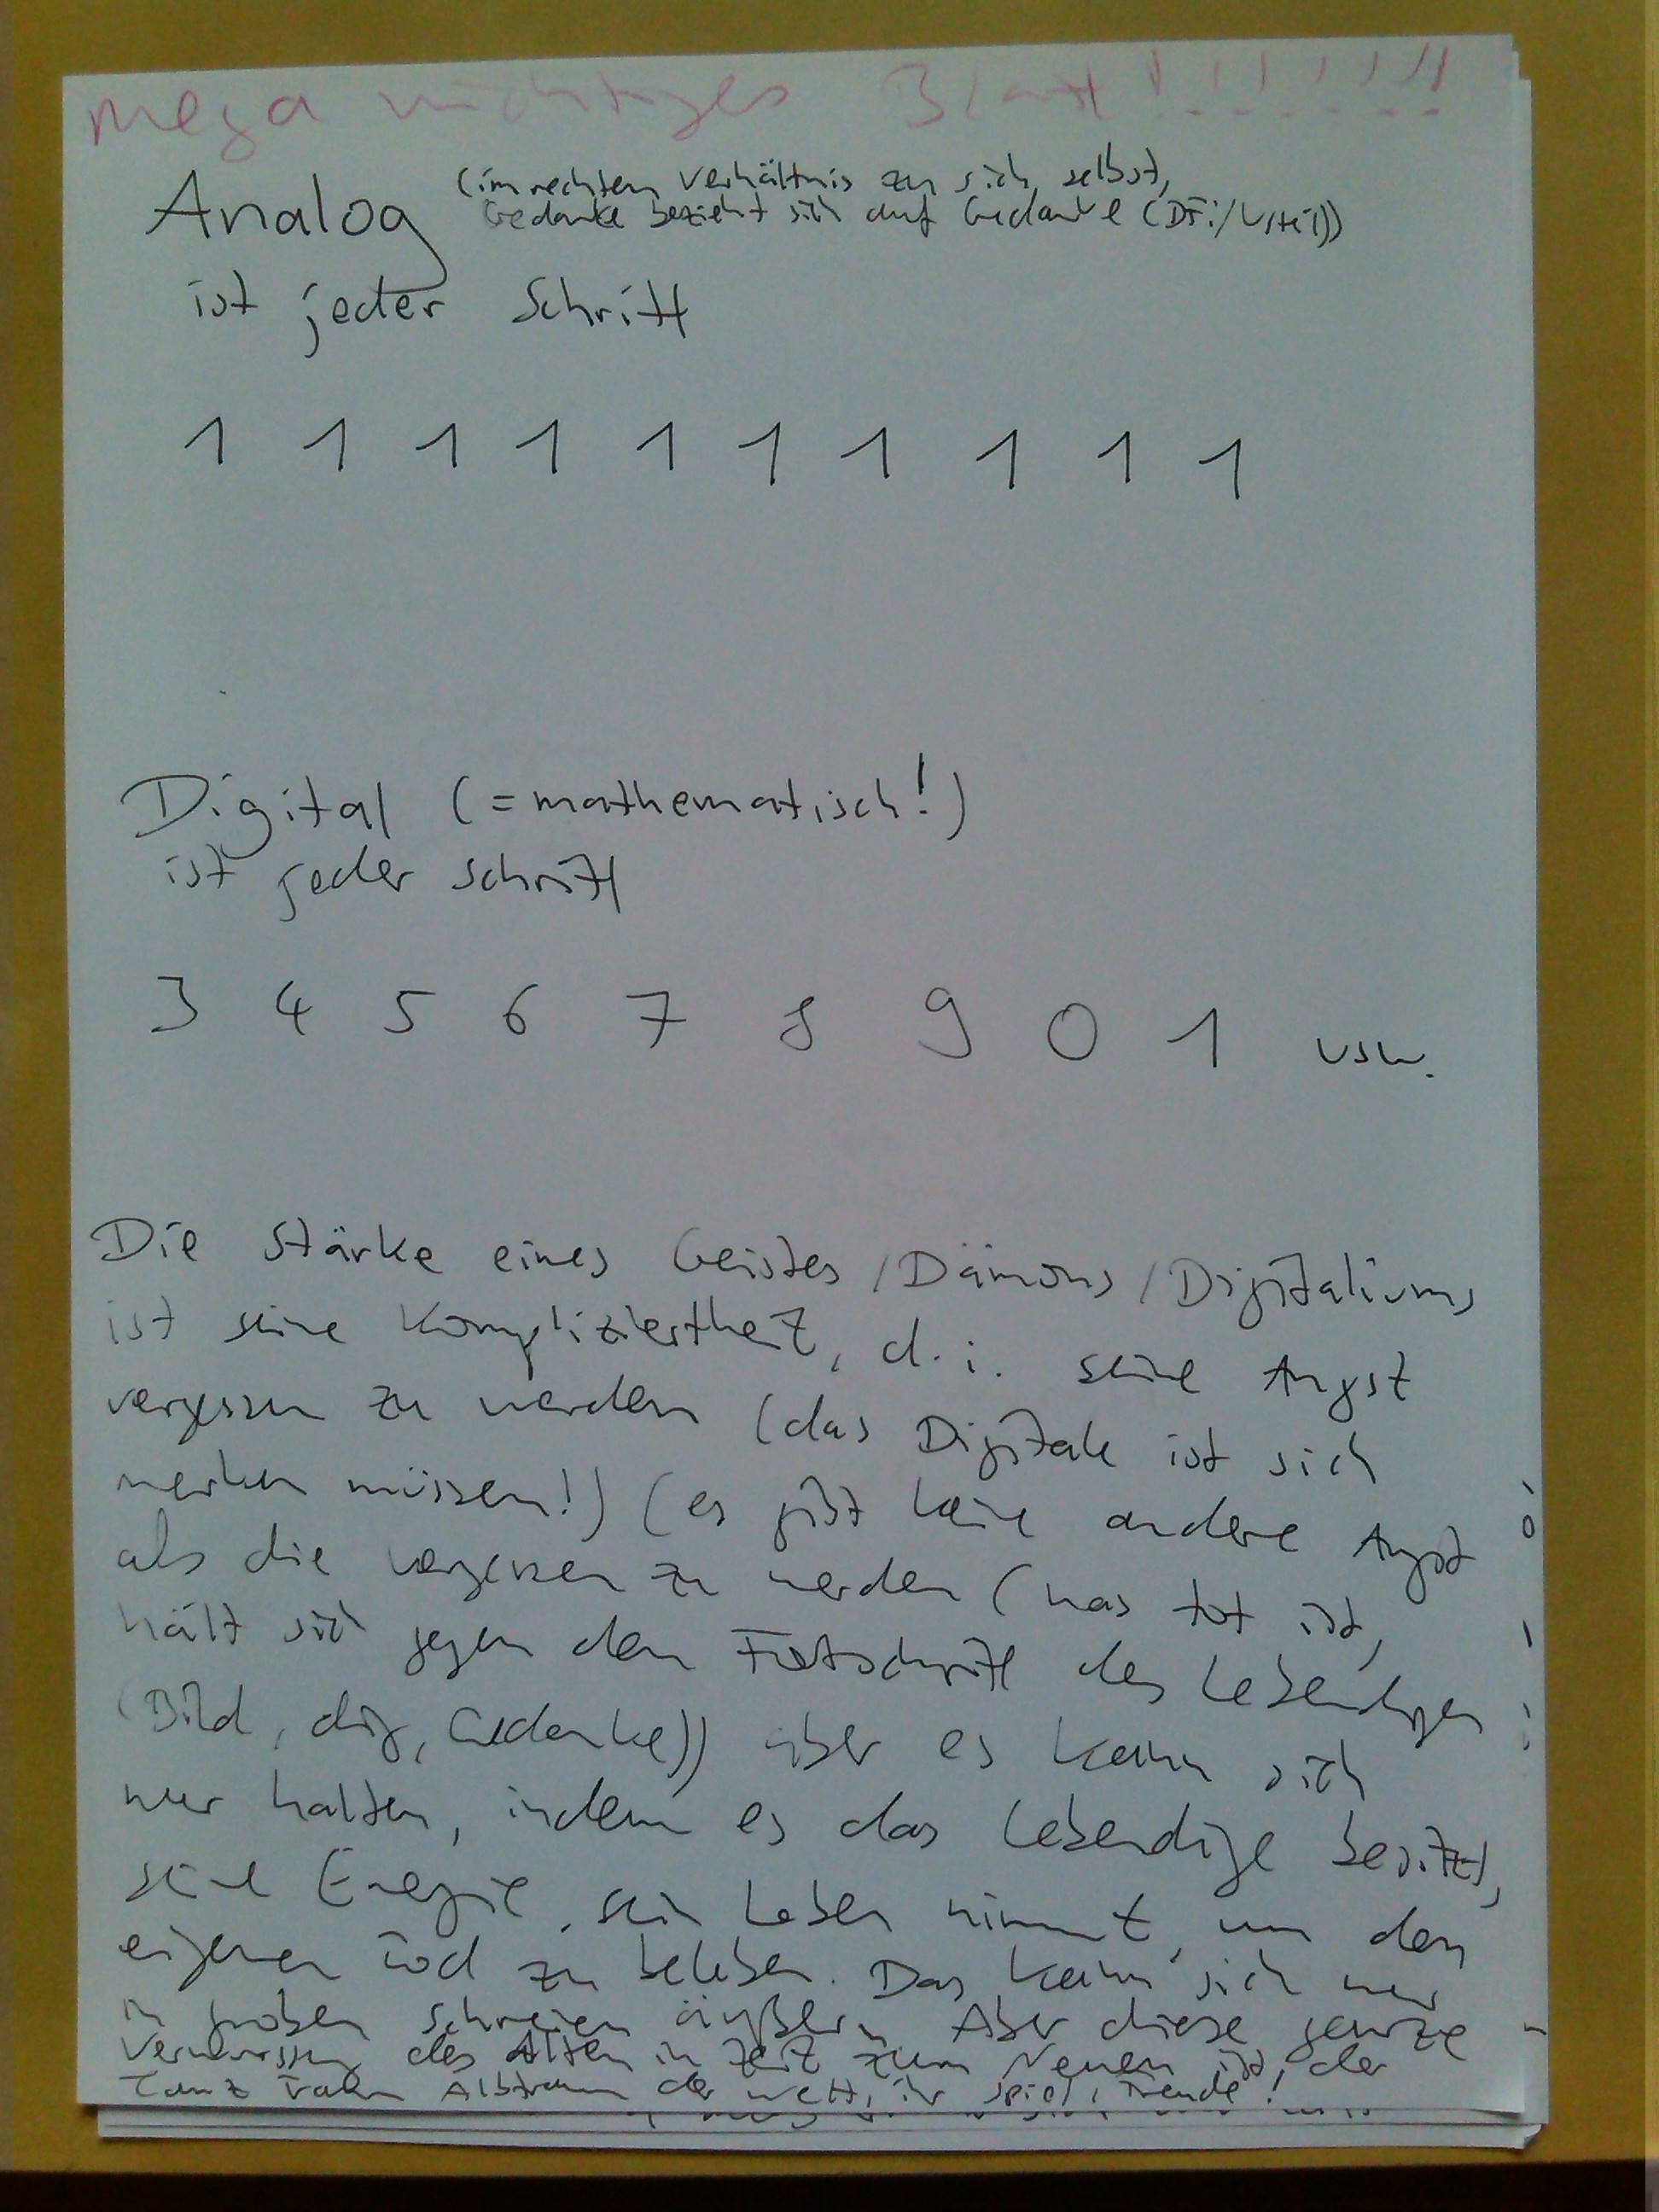 mega wichtiges Blatt!!!!!!!
(im rechten Verhältnis zu sich selbst,
Analog Gedanke bezieht sich auf Gedanke
ist jeder Schritt
1 1 1 1 1 1 1 1 1 1
Digital (=mathematisch!)
ist jeder Schritt
3 4 5 6 7 8 9 0 1 usw.
Die Stärke eines Geistes/Dämons/Digitaliums
ist seine Kompliziertheit, d.i. seine Angst
vergessen zu werden (das Digitale ist sich
merken müssen!) (es gibt keine andere Angst
als die vergessen zu werden (was tot ist,
hält sich gegen den Fortschritt des Lebendigen
(Bild, dig, Gedanke)) aber es kann sich
nur halten, indem es das Lebendige besitzt,
seine Energie, sein Leben nimmt, um den
eigenen Tod zu beleben. Das kann sich nur
in großen Schreien äußern. Aber diese ganze
des Alten in Zeit zum Neuen ist, der
Tanz Albtraum der Welt, ihr Spiel, Freude!